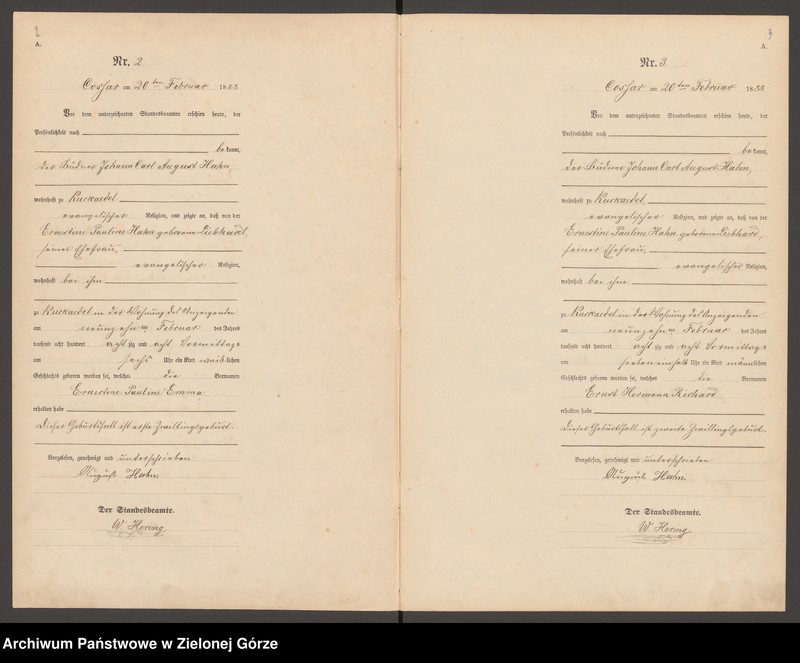 2
A.
Nr. 2
Cossar am 20ten Februar 1888
Vor dem unterzeichneten Standesbeamten erschien heute, der
Persönlichkeit nach
be kannt,
der Büdner Johann Carl August Hahn,
wohnhaft zu Kuckaedel
evangelischer Religion, und zeigte an, daß von der
Ernestine Pauline Hahn geborene Liebhard,
seiner Ehefrau,
evangelischer Religion,
wohnhaft bei ihm
zu Kuckaedel in der Wohnung des Anzeigenden
am neunzehnten Februar des Jahres
tausend acht hundert acht zig und acht Vormittags
um sechs Uhr ein Kind weiblichen
Geschlechts geboren worden sei, welches die Vornamen
Ernestine Pauline Emma
erhalten habe
Dieser Geburtsfall ist erste Zwillingsgeburt.
Vorgelesen, genehmigt und unterschrieben
August Hahn
Der Standesbeamte.
W. Hering
3
A.
Nr. 3.
Cossar am 20ten Februar 1888
Vor dem unterzeichneten Standesbeamten erschien heute, der
Persönlichkeit nach
be kannt,
der Büdner Johann Carl August Hahn,
wohnhaft zu Kuckaedel
evangelischer Religion, und zeigte an, daß von der
Ernestine Pauline Hahn geborene Liebhard,
seiner Ehefrau,
evangelischer Religion,
wohnhaft bei ihm
zu Kuckaedel in der Wohnung des Anzeigenden
am neunzehnten Februar des Jahres
tausend acht hundert acht zig und acht Vormittags
um sieben einhalb Uhr ein Kind männlichen
Geschlechts geboren worden sei, welches die Vornamen
Ernst Hermann Richard
erhalten habe
Dieser Geburtsfall ist zweite Zwillingsgeburt.
Vorgelesen, genehmigt und unterschrieben
August Hahn
Der Standesbeamte.
W. Hering
Archiwum Państwowe w Zielonej Górze